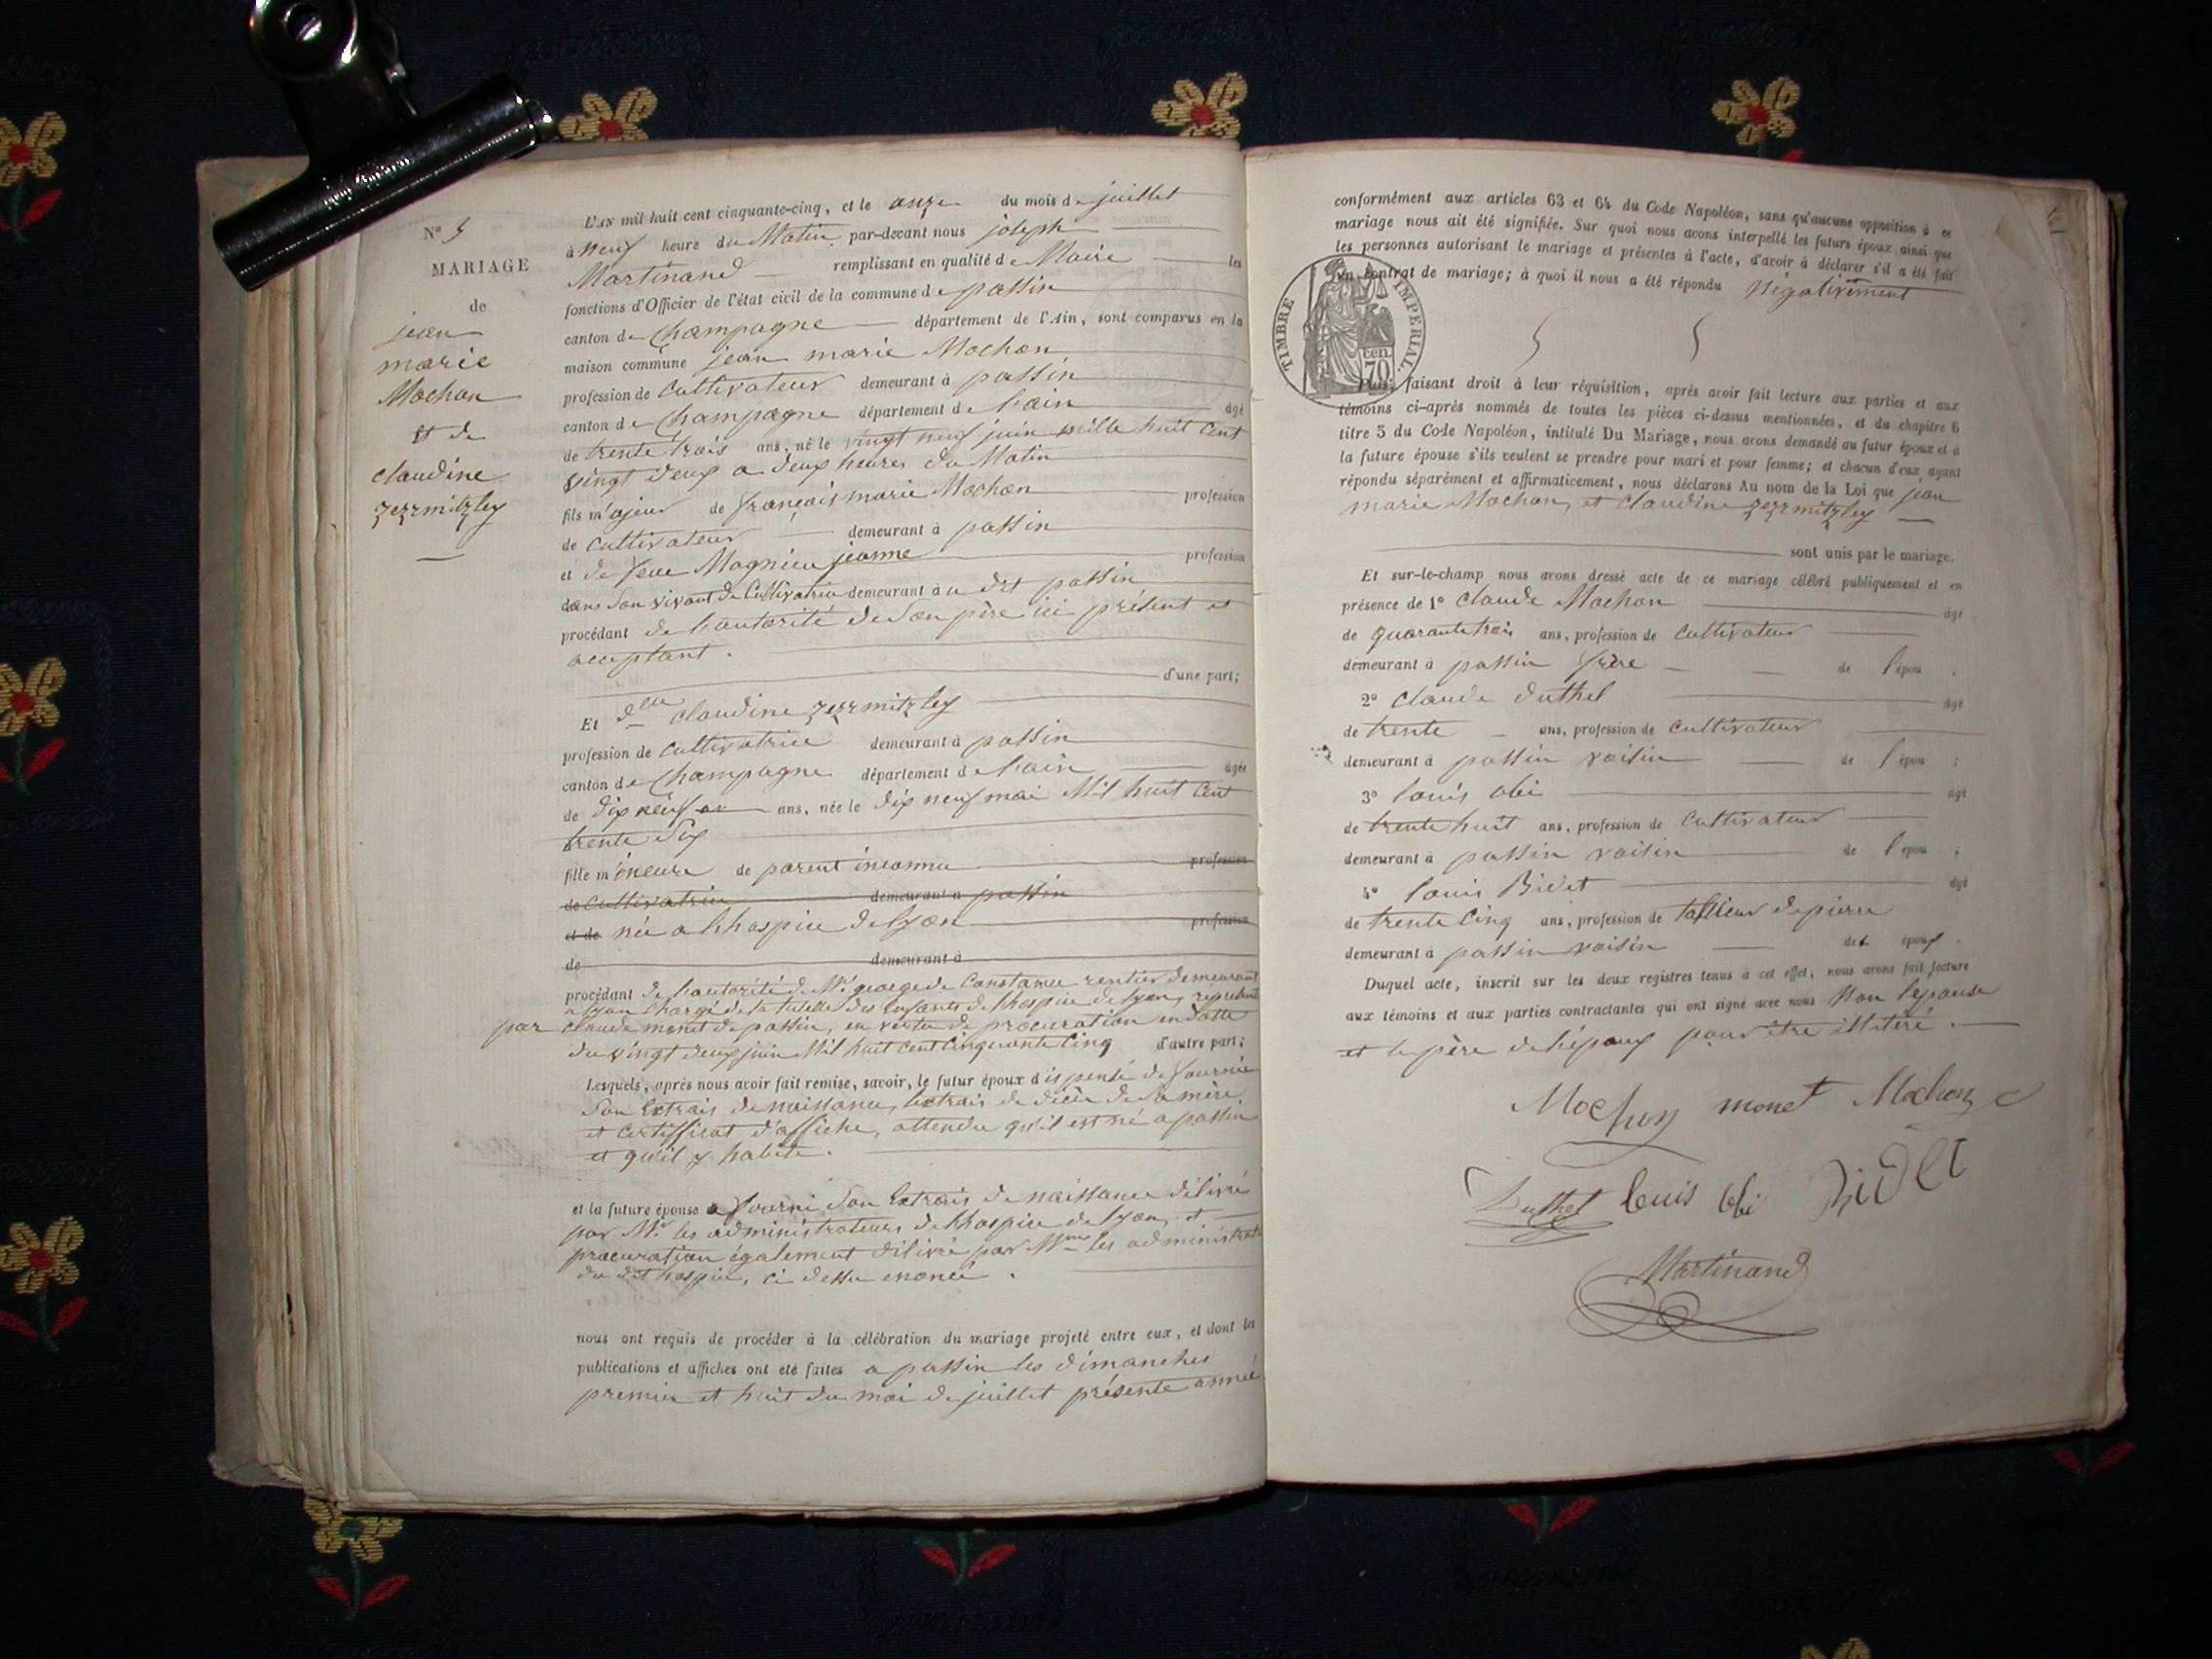 N° 5
MARIAGE
de
jean
marie
Mochon
et de
claudine
zezzmitzley
L'AN mil huit cent cinquante-cinq, et le onze du mois de juillet
à neuf heure du Matin par-devant nous joseph
Martinand remplissant en qualité de Maire les
fonctions d'Officier de l'état civil de la commune de passin
canton de Champagne département de l'Ain, sont comparus en la
maison commune jean marie Mochon
profession de Cultivateur demeurant à passin
canton de Champagne département de l'ain âgé
de trente trois ans, né le vingt neuf juin mille huit Cent
vingt deux a deux heures du Matin
fils majeur de françois marie Mochon profession
de cultivateur demeurant à passin
et de feue Magnieu jeanne profession
dans son vivant de Cultivatrice demeurant au dit passin
procédant de l'autorité de son père ici présent et
acceptant.
d'une part;
Et dlle claudine zezzmitzley
profession de cultivatrice demeurant à passin
canton de Champagne département de l'ain âgée
de dix neuf an ans, née le dix neuf mai Mil huit Cent
trente six
fille mineure de parent inconnu profession
de cultivatrice demeurant à passin
et de née a l'hospice de Lyon profession
de demeurant à
procédant de l'autorité de Mr george de Constance rentier demeurant
a Lyon Chargé de la tutelle des Enfants de l'hospice de Lyon, représenté
par claude monet de passin, en vertu de procuration en datte
du vingt deux juin Mil huit cent Cinquante Cinq d'autre part;
Lesquels, après nous avoir fait remise, savoir, le futur époux dispensé de fournir
son Extrais de naissance, lextrais de décès de sa mère,
et certifficat d'affiche, attendu qu'il est né a passin
et qu'il y habite.
et la future épouse a fourni son Extrais de naissance délivré
par Mr les administrateurs de l'hospice de Lyon, et
procuration également délivré par Mrs les administrateurs
du dit hospice, ci dessu enoncé.
nous ont requis de procéder à la célébration du mariage projeté entre eux, et dont les
publications et affiches ont été faites a passin les dimanches
premier et huit du moi de juillet présente année
conformément aux articles 63 et 64 du Code Napoléon, sans qu'aucune opposition à ce
mariage nous ait été signifiée. Sur quoi nous avons interpellé les futurs époux ainsi que
les personnes autorisant le mariage et présentes à l'acte, d'avoir à déclarer s'il a été fait
un contrat de mariage; à quoi il nous a été répondu négativement
TIMBRE IMPERIAL
70 cen.
Puis, faisant droit à leur réquisition, après avoir fait lecture aux parties et aux
témoins ci-après nommés de toutes les pièces ci-dessus mentionnées, et du chapitre 6
titre 5 du Code Napoléon, intitulé Du Mariage, nous avons demandé au futur époux et à
la future épouse s'ils veulent se prendre pour mari et pour femme; et chacun d'eux ayant
répondu séparément et affirmativement, nous déclarons Au nom de la Loi que jean
marie Mochon, et claudine zezzmitzley
sont unis par le mariage.
Et sur-le-champ nous avons dressé acte de ce mariage célébré publiquement et en
présence de 1° Claude Mochon âgé
de quarante trois ans, profession de Cultivateur
demeurant à passin frère de l'épou ;
2° Claude duthel âgé
de trente ans, profession de Cultivateur
demeurant à passin voisin de l'épou ;
3° louis obi âgé
de trente huit ans, profession de Cultivateur
demeurant à passin voisin de l'épou ;
4° louis Bidet âgé
de trente Cinq ans, profession de tallieur de pierre
demeurant à passin voisin des époux.
Duquel acte, inscrit sur les deux registres tenus à cet effet, nous avons fait lecture
aux témoins et aux parties contractantes qui ont signé avec nous Non lepouse
et le père de l'époux pour être illitéré.
Mochon monet Mochon
Duthel louis obi Bidet
Martinand